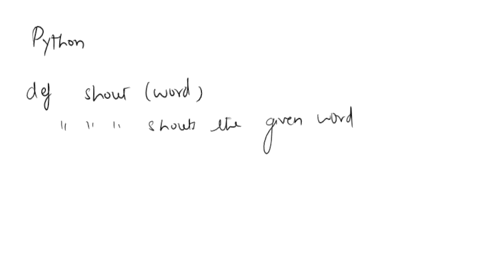 Python
def shout (word)
" " " shouts the given word